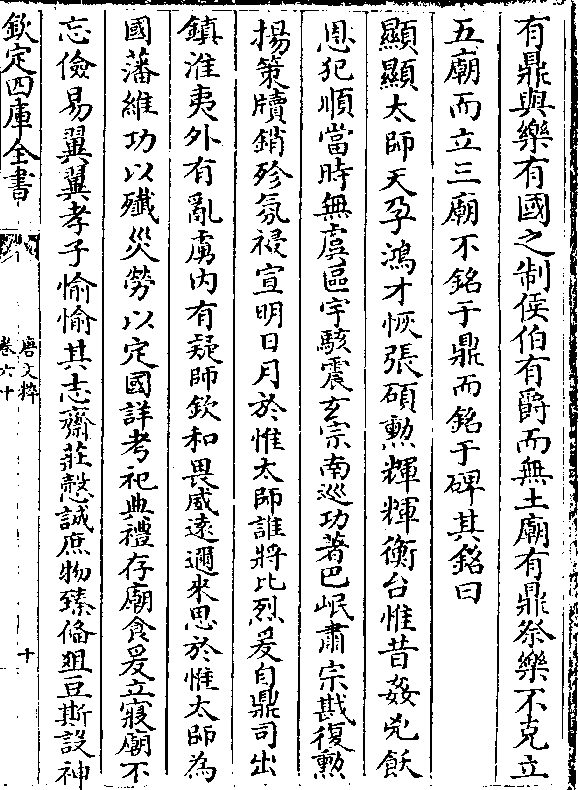 有鼎與樂有國之制侯伯有爵而無土廟有鼎祭樂不克立
五廟而立三廟不銘于鼎而銘于碑其銘曰
顯顯太師天孕鴻才恢張碩勲輝輝衡台惟昔姦兇飫
恩犯順當時無虞區宇駭震玄宗南巡功著巴岷肅宗戡復勲
揚策牘銷殄氛祲宣明日月於惟太師誰將比烈爰自鼎司出
鎮淮夷外有亂虜内有疑師欽和畏威遠邇來思於惟太師為
國藩維功以殱災勞以定國詳考祀典禮存廟食爰立寢廟不
忘儉易翼翼孝子愉愉其志齋莊慤誠庶物臻備俎豆斯設神
欽定四庫全書
唐文粹
卷六十
十